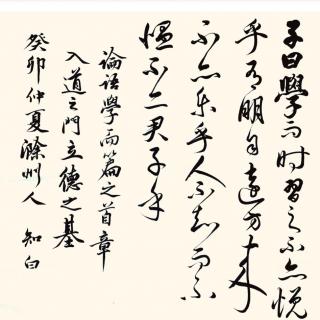 子曰學而时習之不亦悦
乎有朋自遠方来
不亦乐乎人不知而不
愠不亦君子乎
論语學而篇之首章
入道之門立德之基
癸卯仲夏滁州人 知白